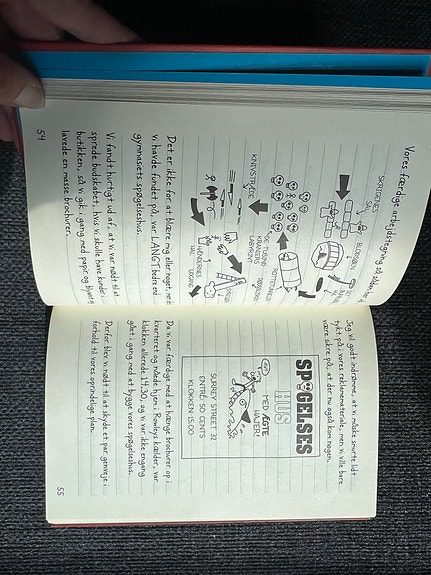 Vores færdige arbejdstegning så sådan
SKRIGENES
SAL
BLODSØEN
KNIVSTRÆDE
DE TUSIND
KRANIERS
LABYRINT
ROTTEFYLDT
HÅNDENS
HAL
UDGANG
Det er ikke for at blære mig eller noget, men
vi havde fundet på, var LANGT bedre end
gymnasiets spøgelseshus.
Vi fandt hurtigt ud af, at vi var nødt til at
sprede budskabet, hvis vi skulle have kunder i
butikken, så vi gik i gang med papir og blyant og
lavede en masse brochurer.
54
Jeg vil godt indrømme, at vi måske smurte lidt
tykt på i vores reklamemateriale, men vi ville bare
være sikre på, at der nu også kom nogen.
SPØGELSES
HUS
MED ÆGTE
HAJER!
SURREY STREET 32
ENTRÉ: 50 CENTS
KLOKKEN 15.00
Da vi var færdige med at hænge brochurer op i
kvarteret og nåede hjem i Rowleys kælder, var
klokken allerede 14.30, og vi var ikke engang
gået i gang med at bygge vores spøgelseshus.
Derfor blev vi nødt til at skyde et par genveje i
forhold til vores oprindelige plan.
55